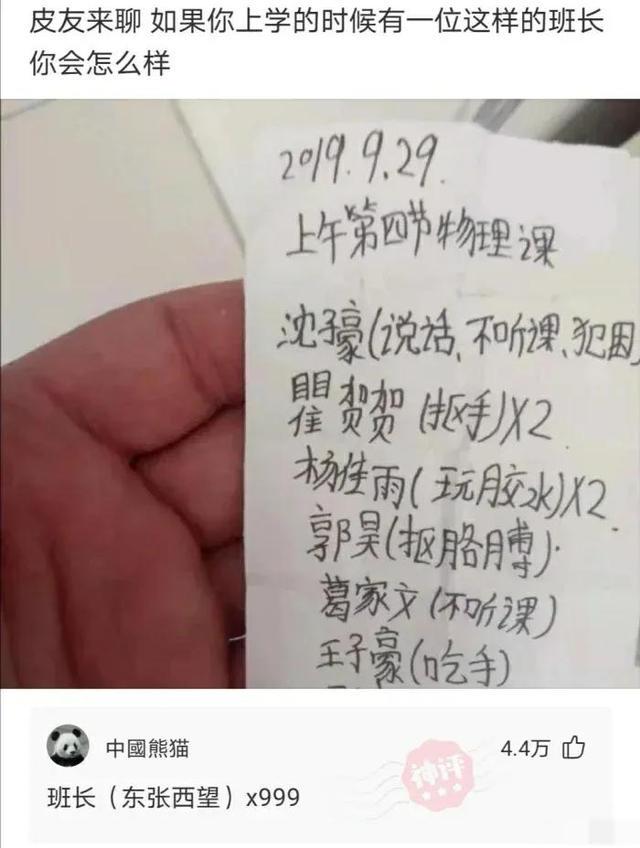 皮友来聊 如果你上学的时候有一位这样的班长
你会怎么样
2019.9.29.
上午第四节物理课
沈子豪(说话、不听课、犯困
瞿贺贺(抠手)X2
杨佳雨(玩胶水)X2.
郭昊(抠胳膊).
葛家文(不听课)
王子豪(吃手)
中國熊猫
神评
4.4万
班长（东张西望）x999